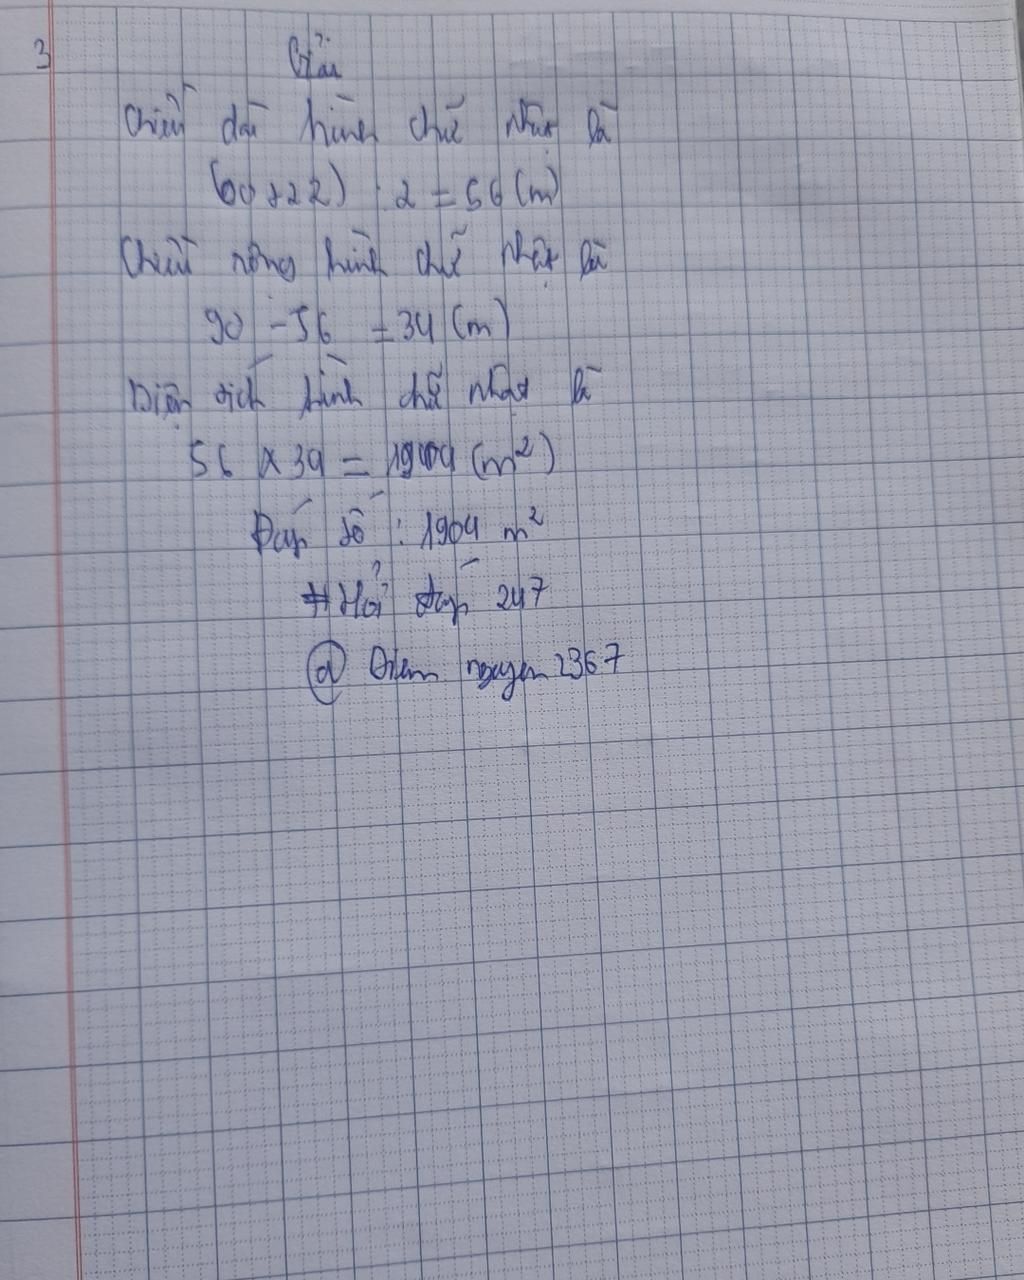 3
Giải
Chiều dài hình chữ nhật là
(90 + 22) : 2 = 56 (m)
Chiều rộng hình chữ nhật là
90 - 56 = 34 (m)
Diện tích hình chữ nhật là
56 x 34 = 1904 (m²)
Đáp số : 1904 m²
#Hỏi đáp 247
@ Diem nguyen 2367